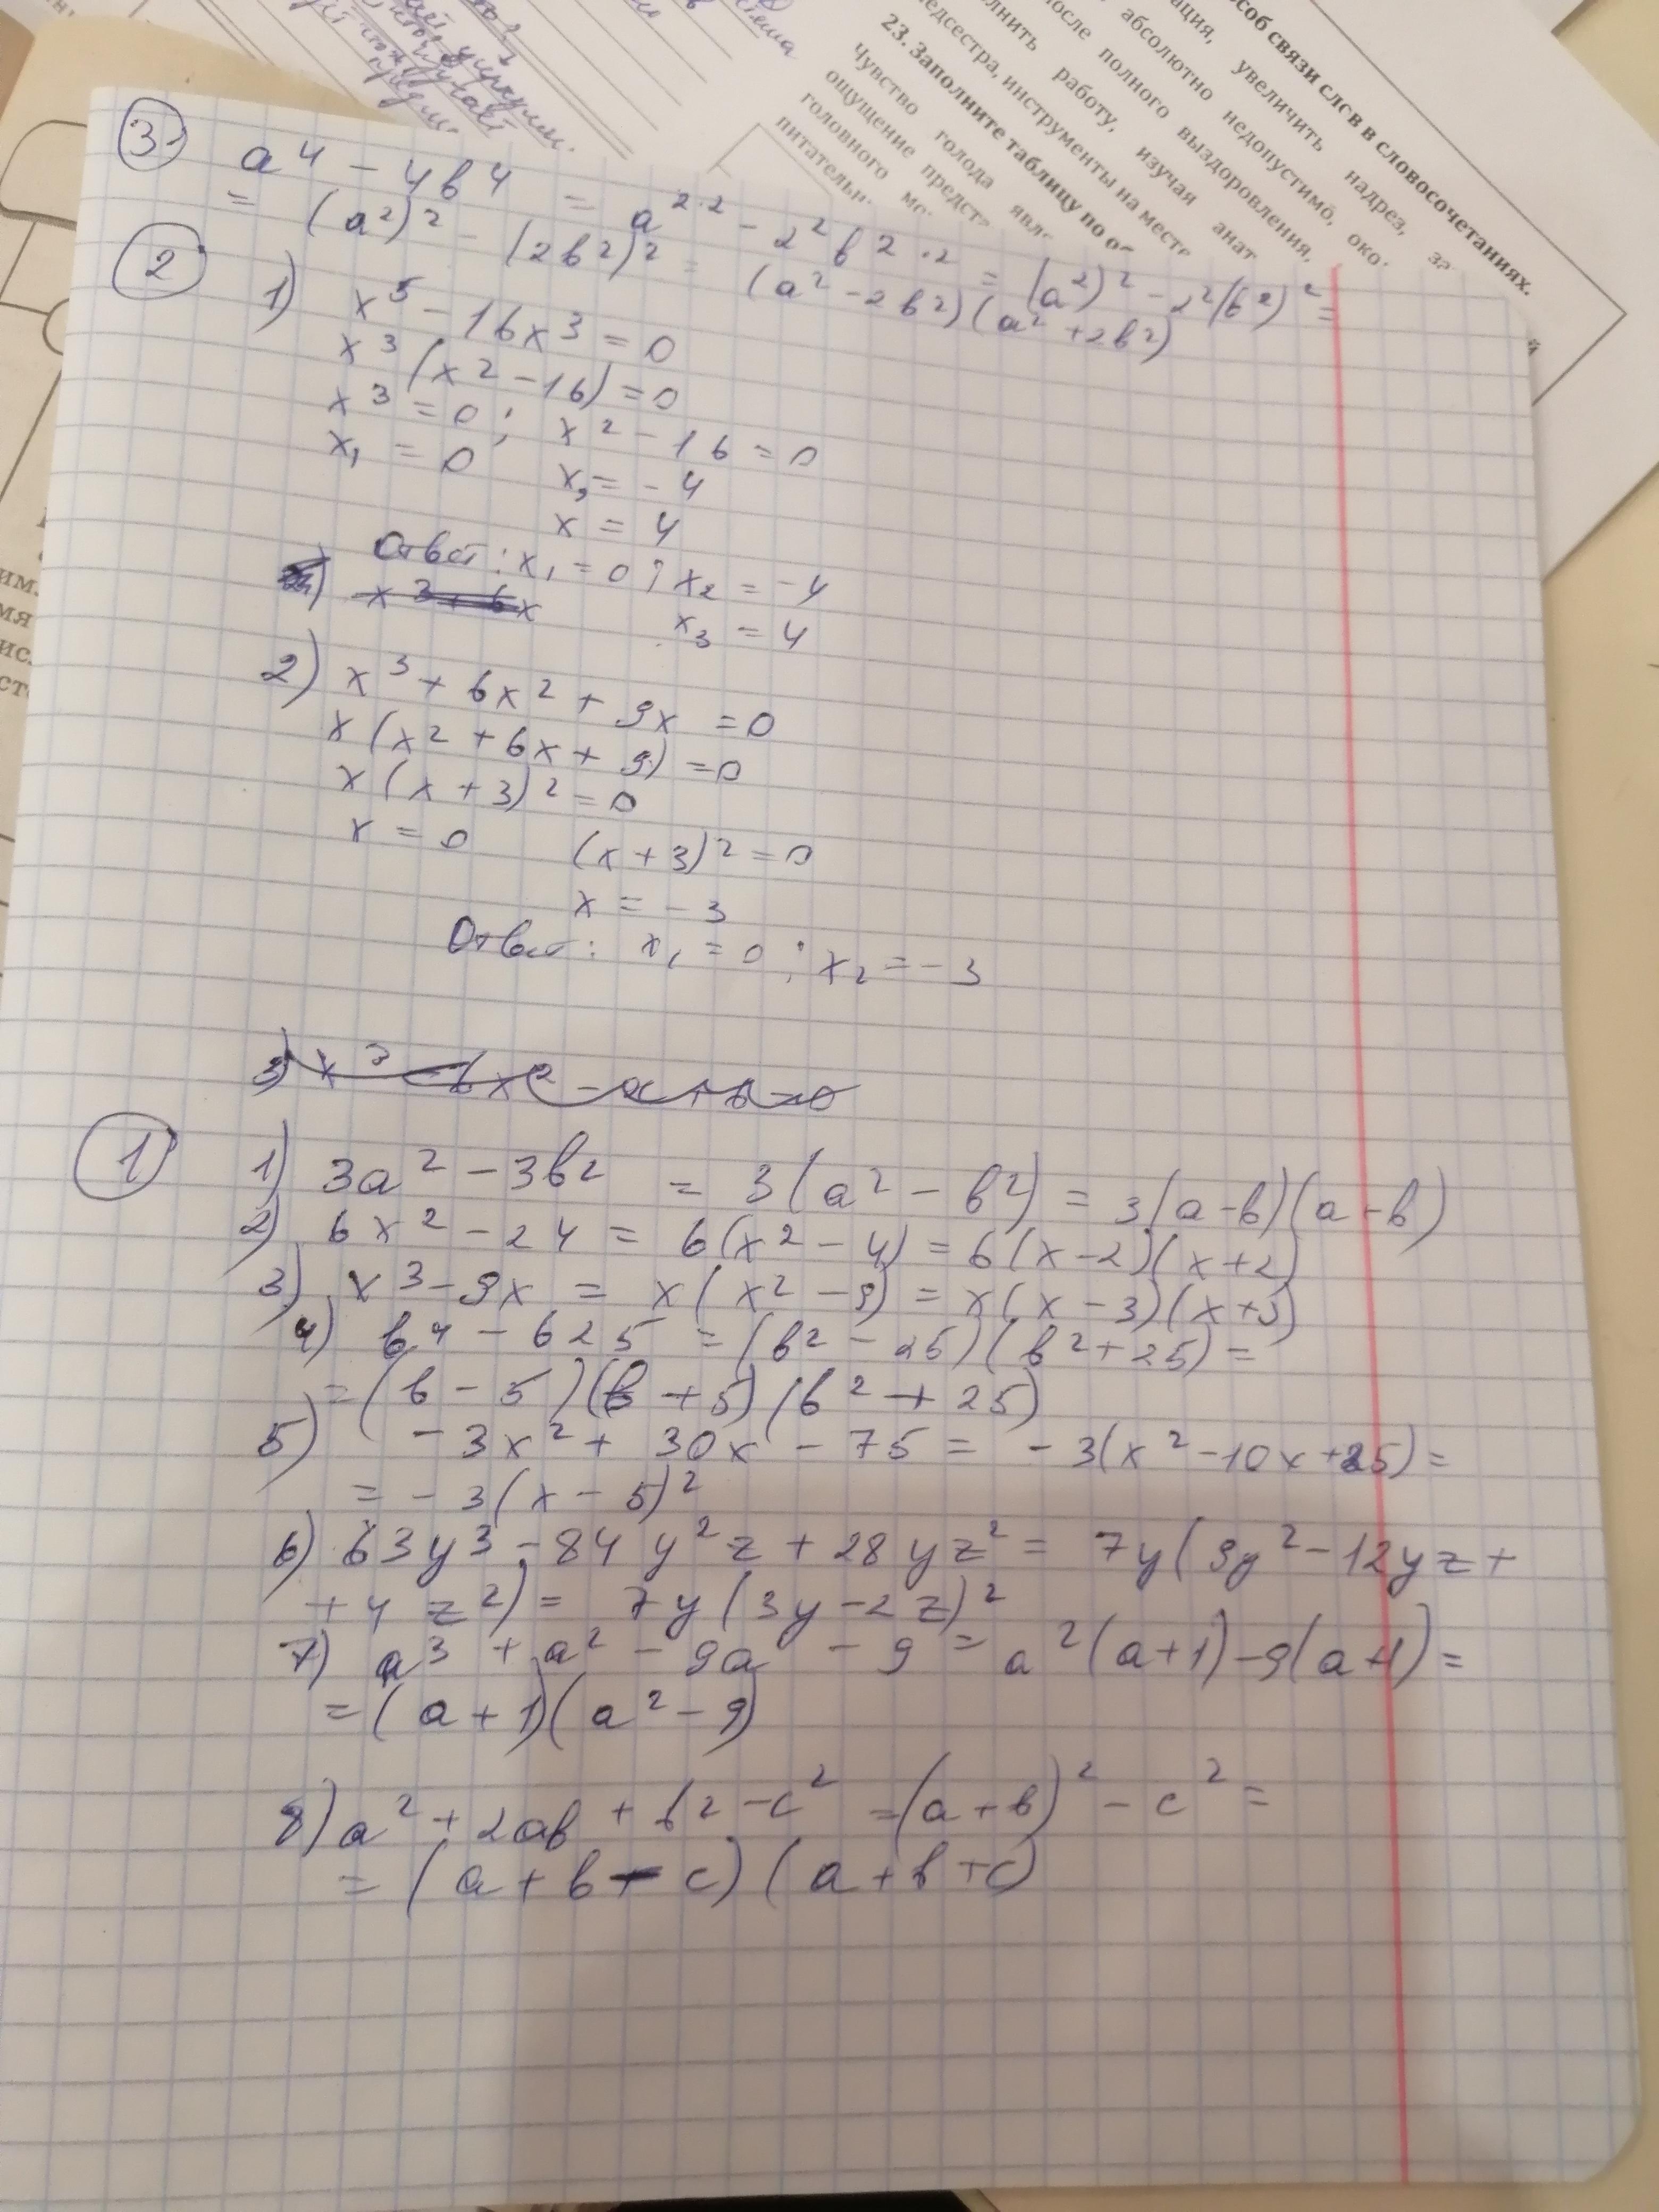 соб связи слов в словосочетаниях.
ация, увеличить надрез, за
абсолютно недопустимо, око
после полного выздоровления,
лнить работу, изучая анат
едсестра, инструменты на месте
23. Заполните таблицу по
Чувство голода явл
ощущение предст
головного мо
питательн
③ a⁴ - 4в⁴ = a²·² - 2²в²·² = (a²)² - 2²(в²)² =
= (a²)² - (2в²)² = (a² - 2в²)(a² + 2в²)
② 1) x⁵ - 16x³ = 0
x³(x² - 16) = 0
x³ = 0; x² - 16 = 0
x₁ = 0 x₂ = -4
x = 4
Ответ: x₁ = 0; x₂ = -4
x₃ = 4
x³ + 6x
2) x³ + 6x² + 9x = 0
x(x² + 6x + 9) = 0
x(x + 3)² = 0
x = 0 (x + 3)² = 0
x = -3
Ответ: x₁ = 0; x₂ = -3
3) x³ - 6x² - x + 6 = 0
① 1) 3a² - 3в² = 3(a² - в²) = 3(a - в)(a + в)
2) 6x² - 24 = 6(x² - 4) = 6(x - 2)(x + 2)
3) x³ - 9x = x(x² - 9) = x(x - 3)(x + 3)
4) в⁴ - 625 = (в² - 25)(в² + 25) =
= (в - 5)(в + 5)(в² + 25)
5) -3x² + 30x - 75 = -3(x² - 10x + 25) =
= -3(x - 5)²
6) 63y³ - 84y²z + 28yz² = 7y(9y² - 12yz +
+ 4z²) = 7y(3y - 2z)²
7) a³ + a² - 9a - 9 = a²(a + 1) - 9(a + 1) =
= (a + 1)(a² - 9)
8) a² + 2aв + в² - c² = (a + в)² - c² =
= (a + в - c)(a + в + c)